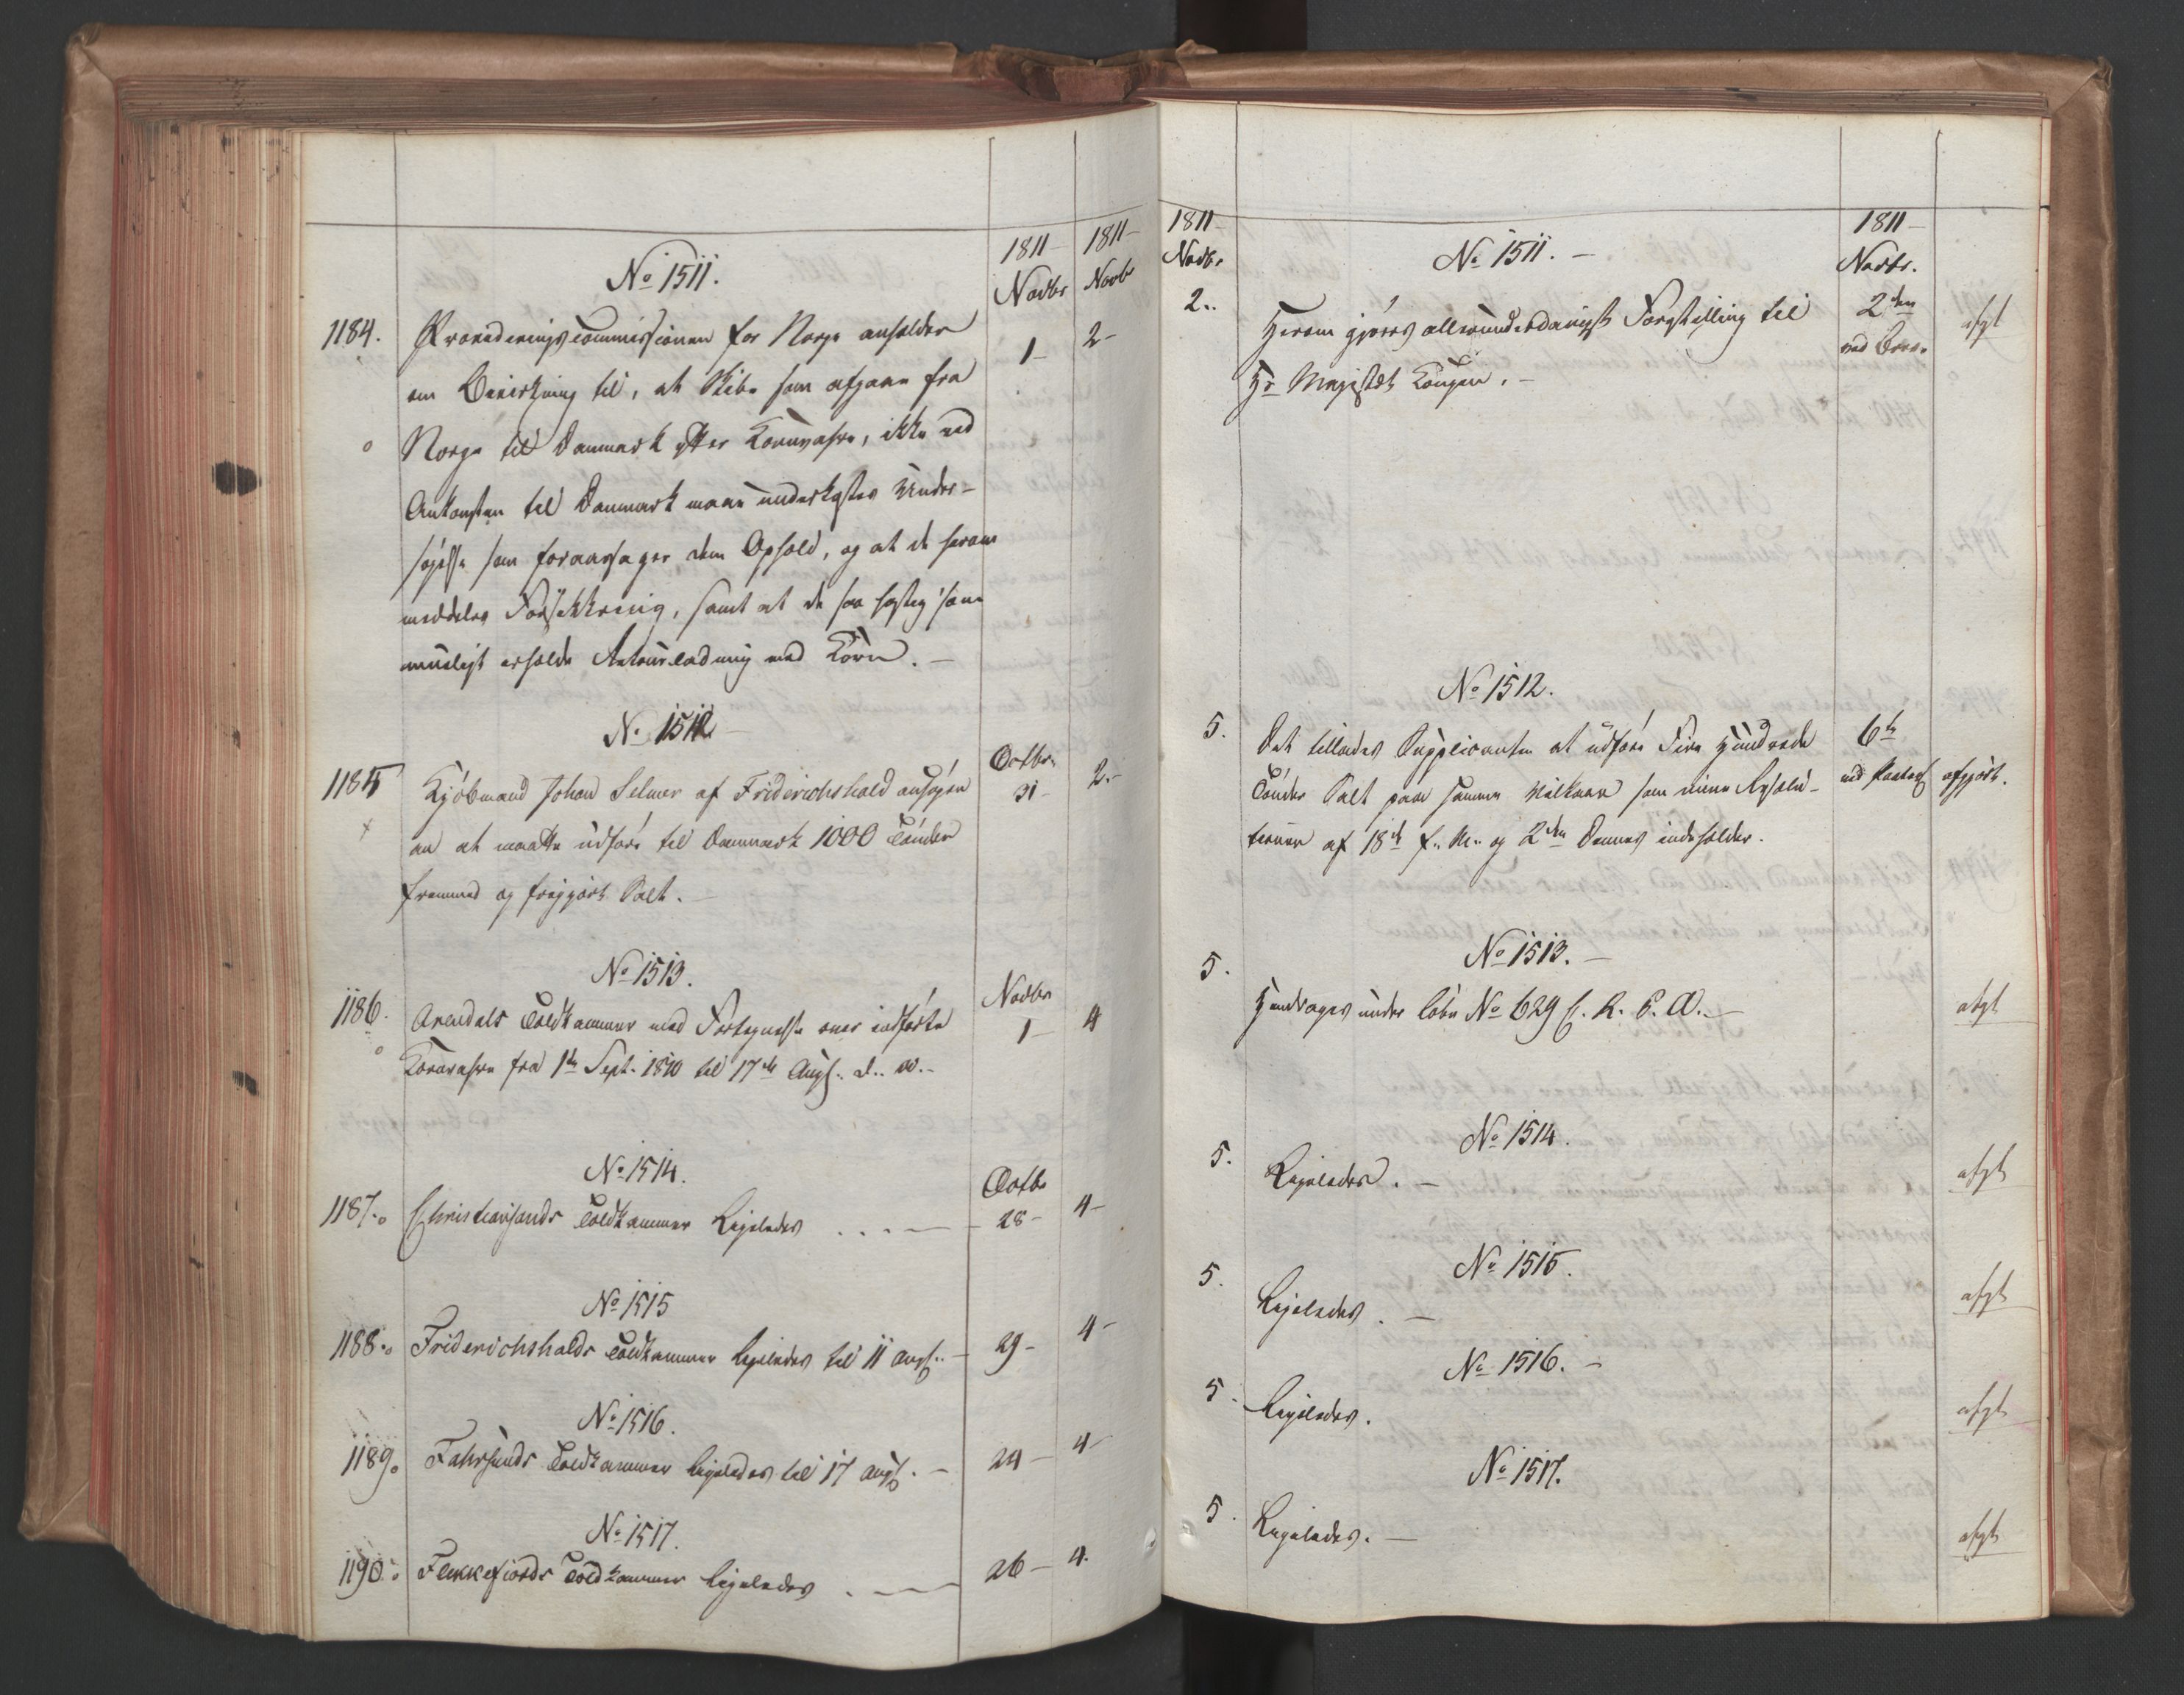 1811 - 1811 -
No 1511. Novbr Novbr
1184. Provideringscommissionen for Norge anholder 1 - 2 -
om Bevirkning til, at Skibe som afgaae fra
Norge til Danmark efter Kornvahre, ikke ved
Ankomsten til Danmark maae underkastes Under-
søgelse som foraarsager dem Ophold, og at de herom
meddeles Forsikkring, samt at de saa hastig som
mueligt erholde Retourladning med Korn. -
No 1512
1185 Kjöbmand Johan Selmer af Friderichshald ansøger Octbr. 31 - 2. -
om at maatte udføre til Danmark 1000 Tönder
fremmed og frigjort Salt. -
No 1513.
1186. Arendals Toldkammer med Fortegnelse over indførte Novbr 1 - 4
Kornvahre fra 1te Sept. 1810 til 17de Aug. d. A. -
No 1514.
1187. Christiansands Toldkammer Ligeledes . . . . - Octbr 28 - 4 -
No 1515
1188. Friderichshalds Toldkammer ligeledes til 11 Aug. - 29 - 4 -
No 1516.
1189. Fahrsunds Toldkammer ligeledes til 17 Aug. - 24 - 4 -
No 1517.
1190. Flekkefiords Toldkammer ligeledes . - 26 - 4.
1811 - 1811 -
Novbr. No 1511. - Novbr.
2. Herom gjøres allerunderdanigst Forestilling til 2den afgt
Hs Majestæt Kongen. - med
No 1512.
5. Det tillades Supplicanten at udføre Fire Hundrede 6te
Tönder Salt paa samme Vilkaar som mine Resolu- med afgjort.
tioner af 18de f. M. og 2den Dennes indeholder.
No 1513. -
5. Henlægges under Løbe No 629 afgt
No 1514.
5. Ligeledes. - afgt
No 1515.
5. Ligeledes . - afgt
No 1516. -
5 - Ligeledes. afgt
No 1517.
5. Ligeledes. - afgt